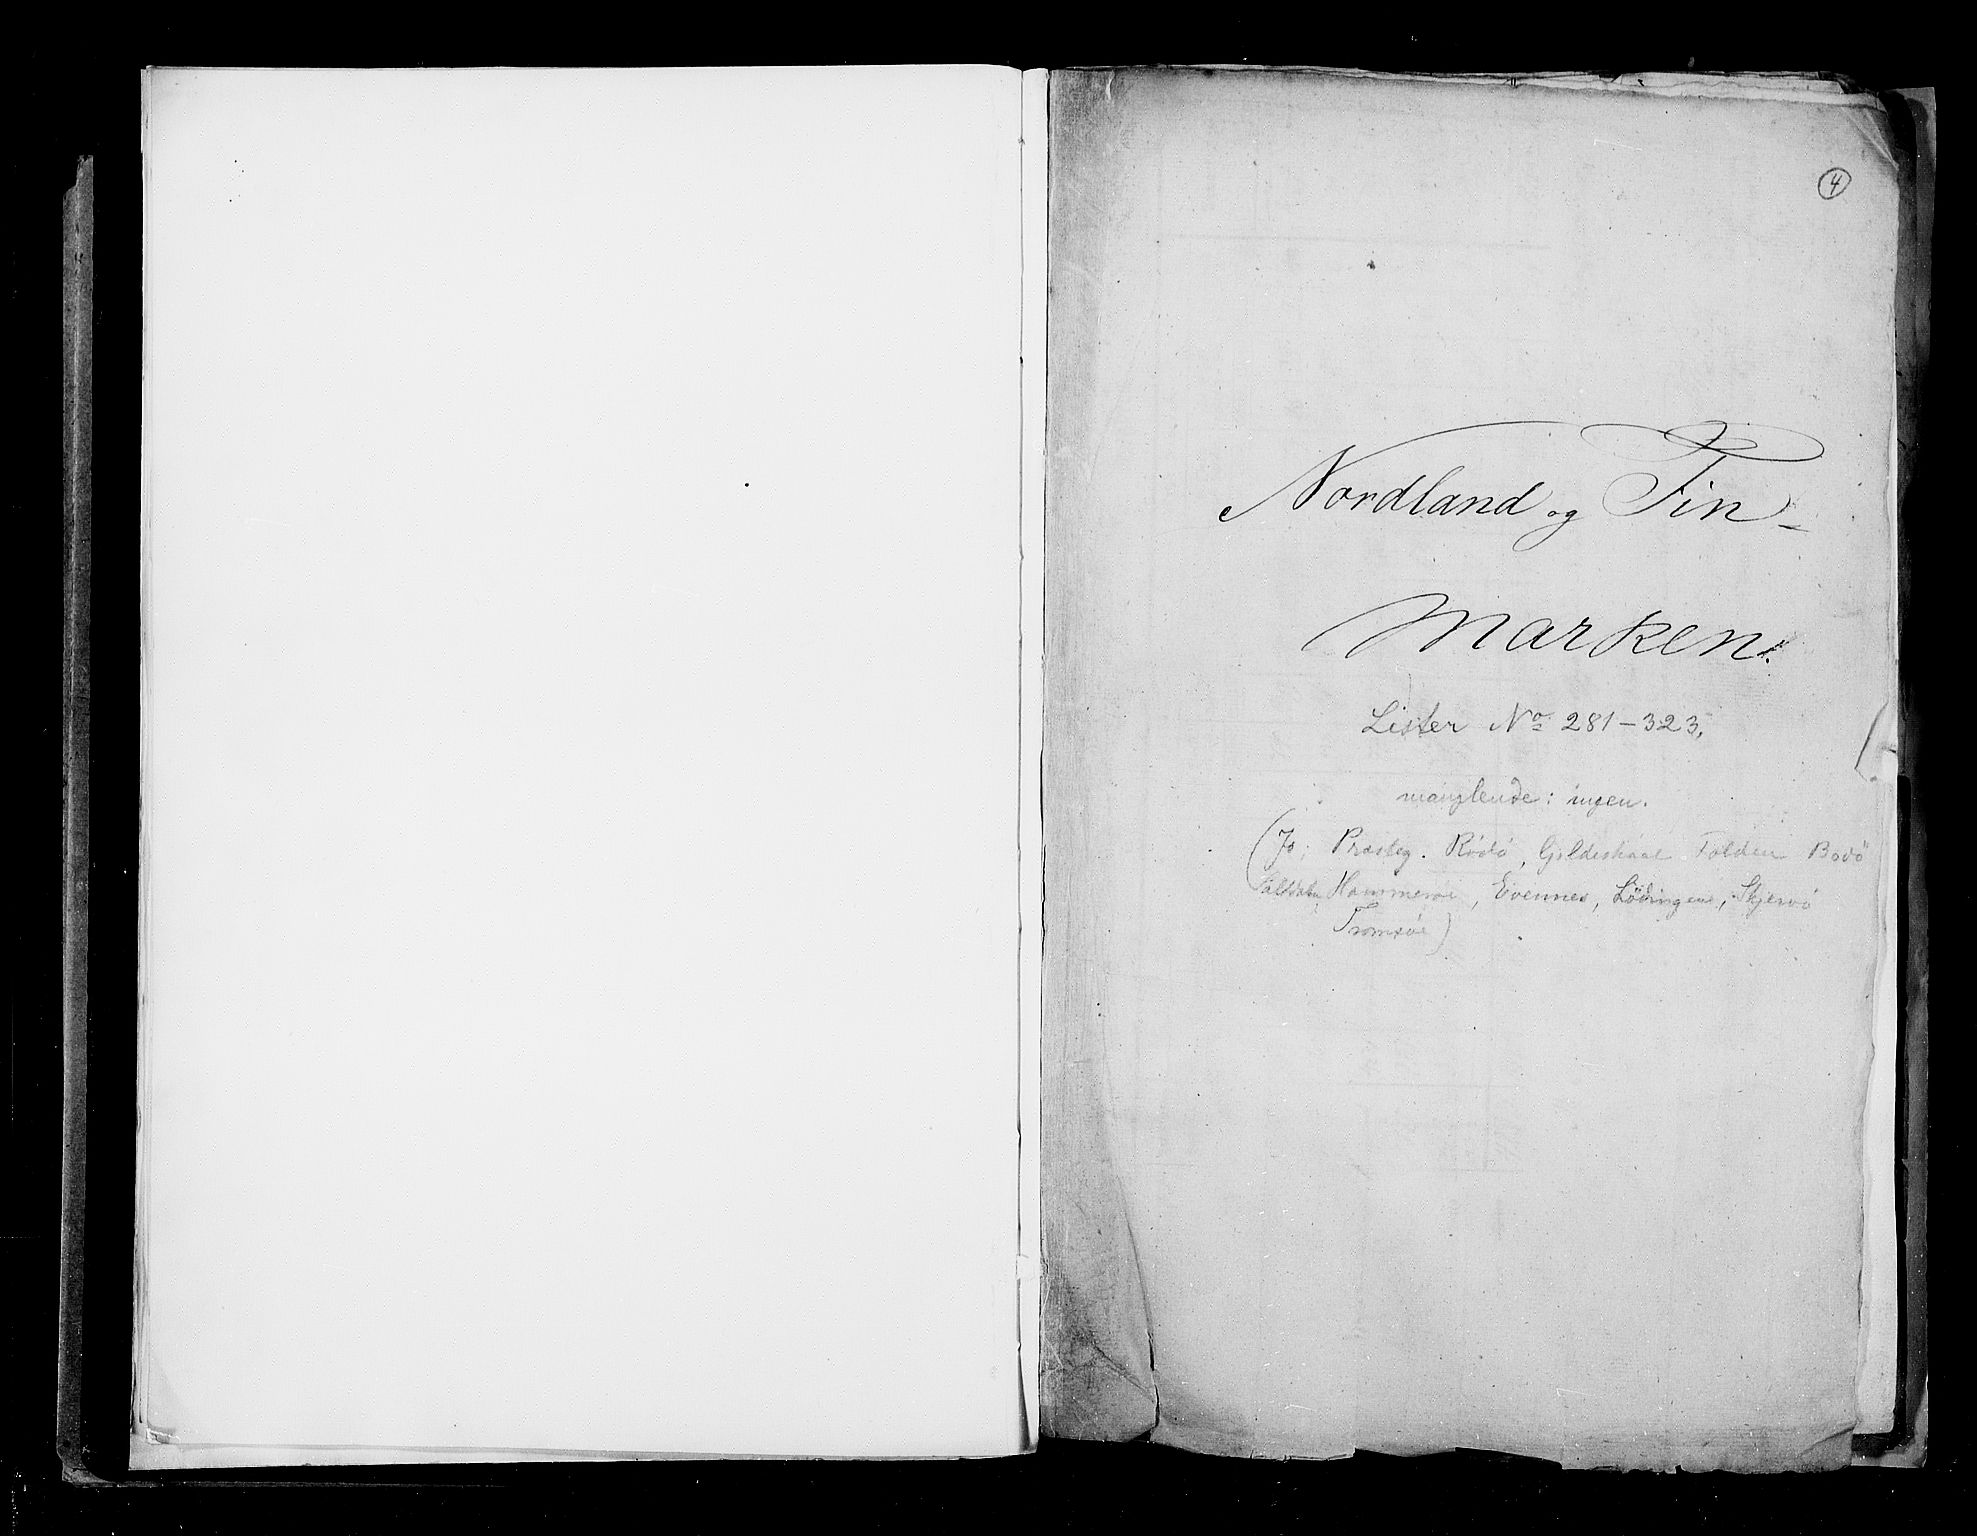 4
Nordland og Fin-
marken.
Lister No 281-323.
manglende: ingen.
(Jo; Præsteg. Rödö, Gildeskaal Folden Bodö
Saltdalen Hammerøe, Evennes, Lödingen, Skjervö
Tromsöe)